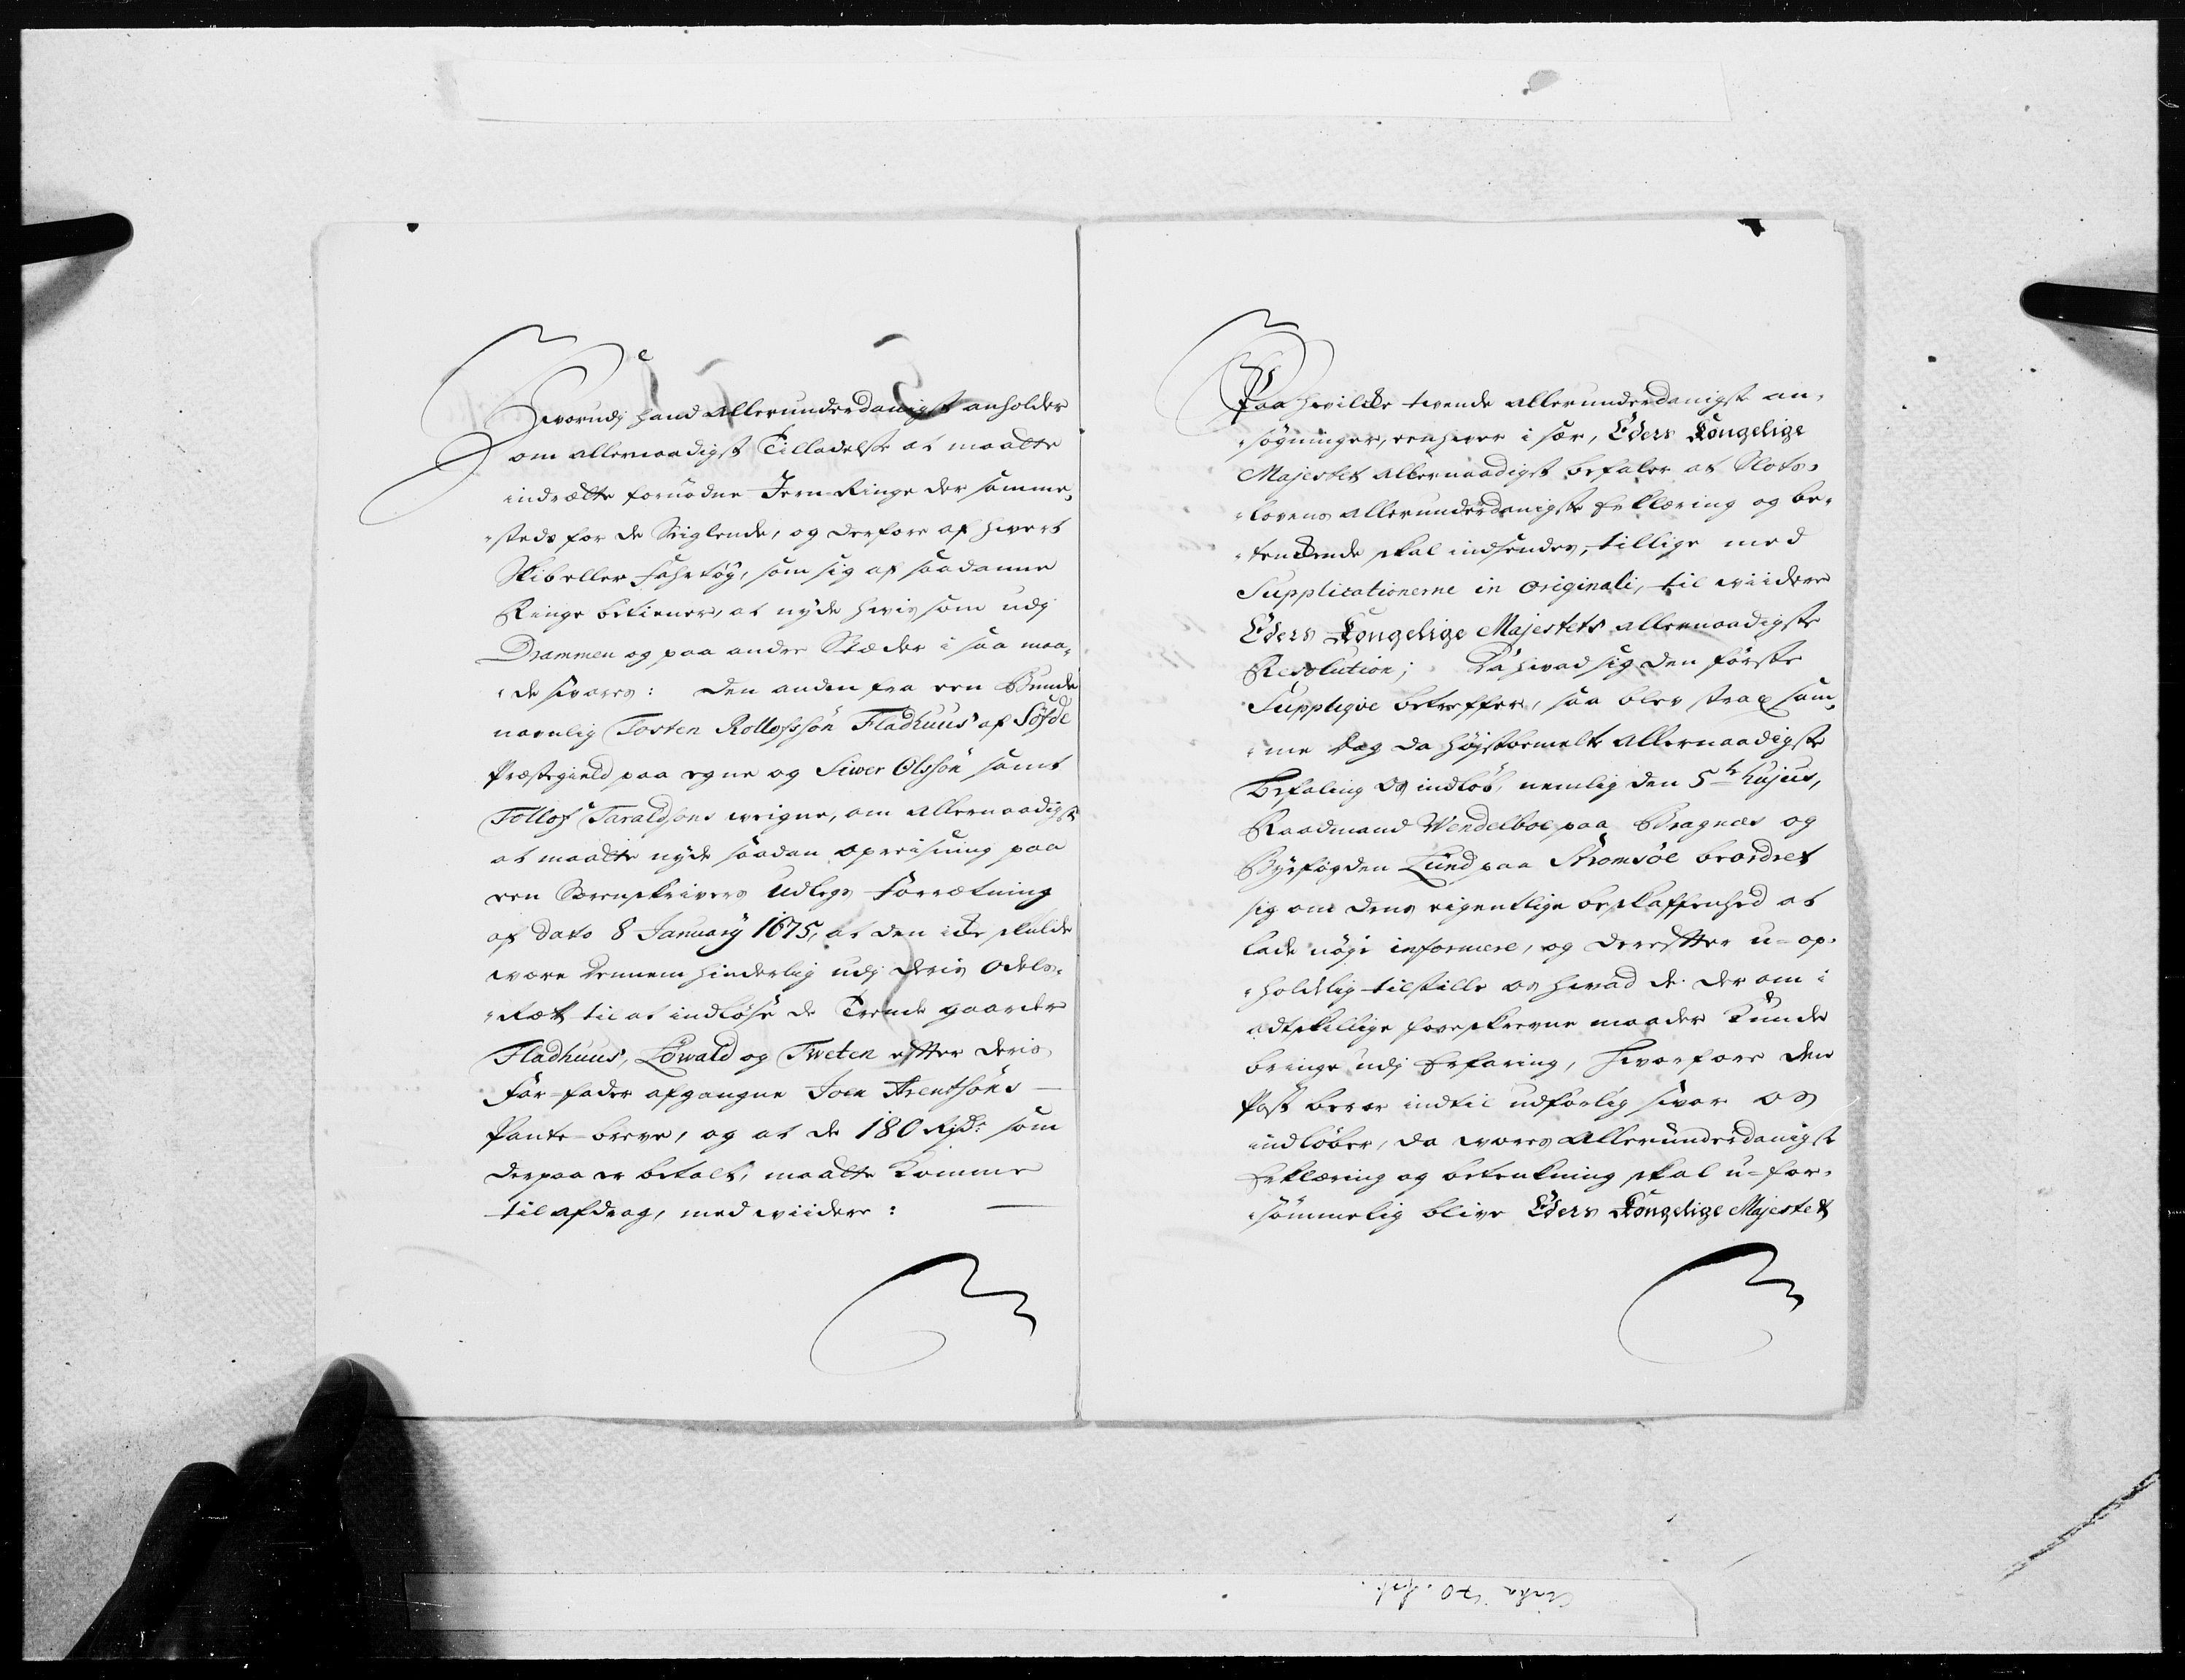 Hvorudj hand allerunderdanigst anholder
om allernaadigst Tilladelse at maatte
indrætte fornødne Jern-Ringe der samme,
"steds for de Seiglende, og derfore af hvert
Skib eller Fahrtøÿ, som sig af saadanne
Ringe betiener, at nyde hvis som udj
Drammen og paa andre Stæder i saa maa,
"de svares: den anden fra een Bunde
navnlig Tosten Rollofssøn Fladhuus af Søfde
Præstegield paa egne og Siwer Olssøn samt
Tollof Taraldsøns weigne, om allernaadigst
at maatte nyde saadan opreisning paa
een Sorenskrivers Udlegs Forrætning
af dato 8 Januarÿ 1675, at den icke skulde
være dennem hinderlig udj deris Odels,
"Ræt til at indløse de Trende gaarder
Fladhuus, Löwald og Tweten efter deris
Far-fader afgangne Joen Arentsøns
Pante-breve, og at de 180 Rjdr som
derpaa er betalt, maatte komme
til afdrag, med wiidere:
Paa hvilcke tvende allerunderdanigst an,
"søgninger, eenhver i sær, Eders Kongelige
Majestet allernaadigst befaler at Slots,
"lovens allerunderdanigste Erklæring og be,
"tenckende skal indsendes, tillige med
Supplicationerne in originali, til wiidere
Eders Kongelige Majestets allernaadigste
Resolution; Da hvad sig den første
Suppliqve betreffer, saa blev strax sam,
"me Dag da højstbemelte allernaadigste
Befaling os indløb, nemlig den 5te hujus,
Raadmand Wendelboe paa Bragnæs og
Byefogden Lund paa Strömsöe beordret
sig om dens eigentlige beskaffenhed at
lade nöÿe informere, og derefter u-op,
"holdelig tilstille os hvad de der om i
adskillige foreskrevne maader kunde
bringe udj Erfaring, hvorfore den
Post beroer indtil udførlig svar os
indløber, da wores allerunderdanigste
Erklæring og betenkning skal u-for,
"sømmelig blive Eders Kongelige Majestet